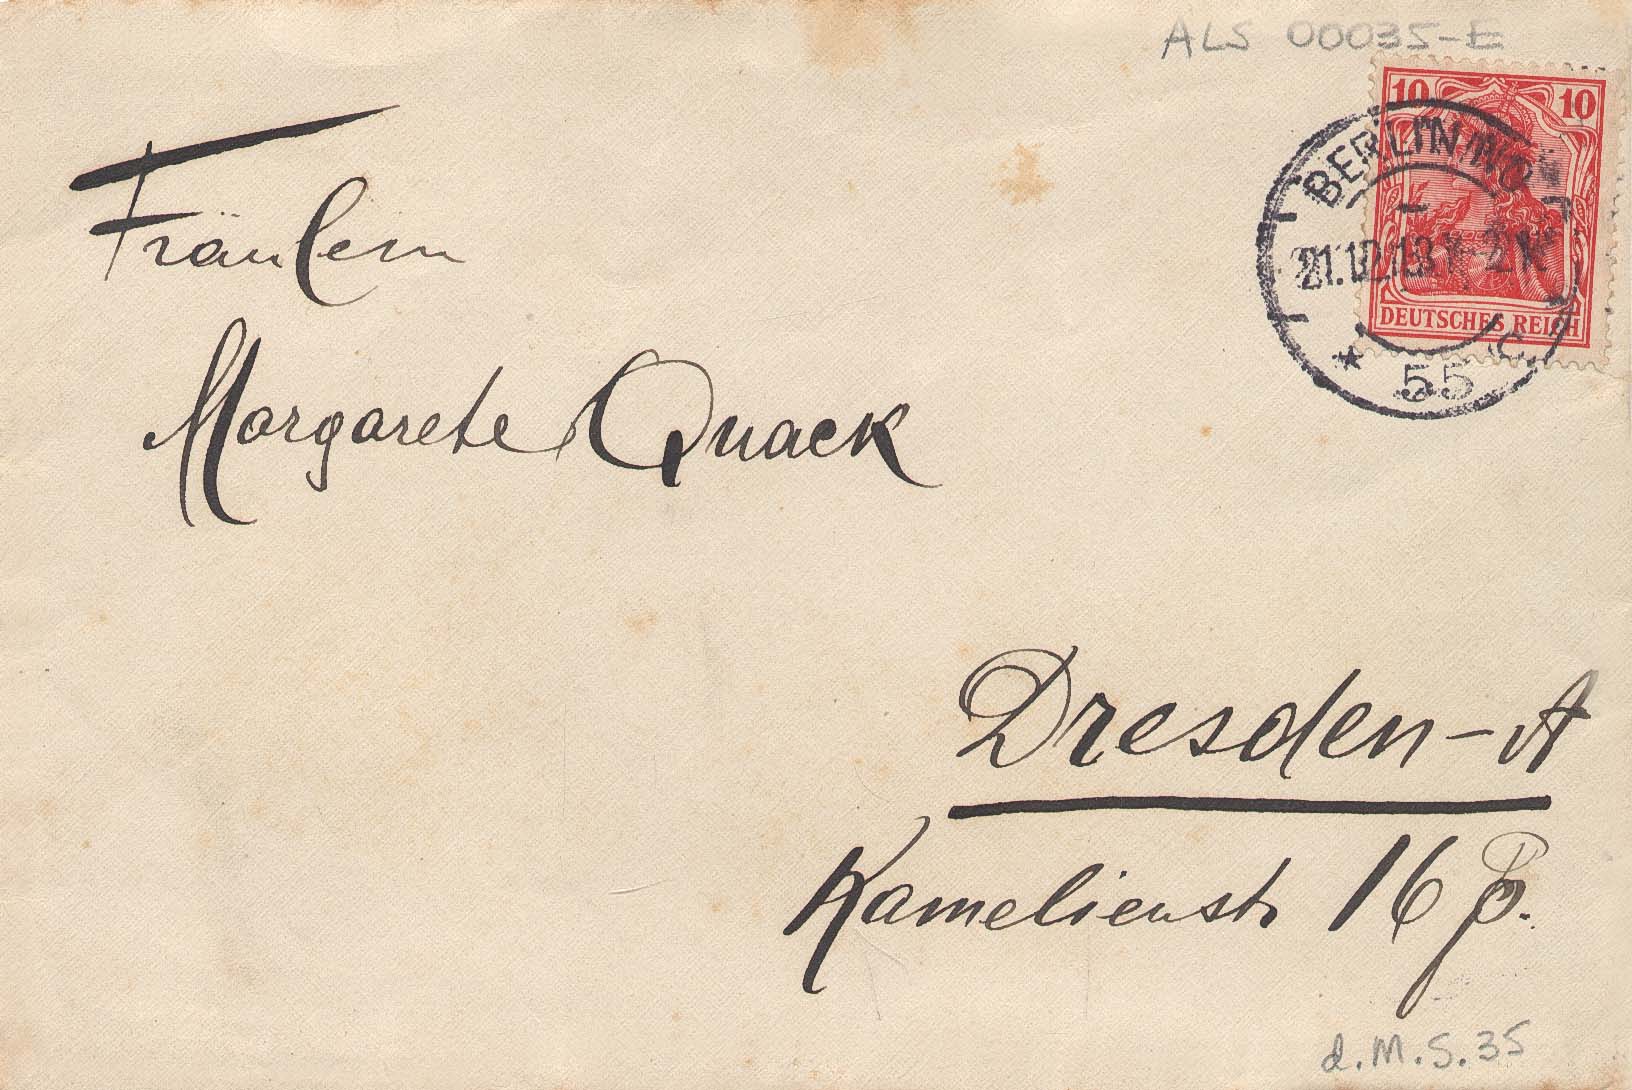 ALS 00035-E
10 10
DEUTSCHES REICH
BERLIN NO
21.12.13.1-2N
* 55 c.
Fräulein
Margarete Quack
Dresden-A
Kamelienstr 16
d.M.S.35